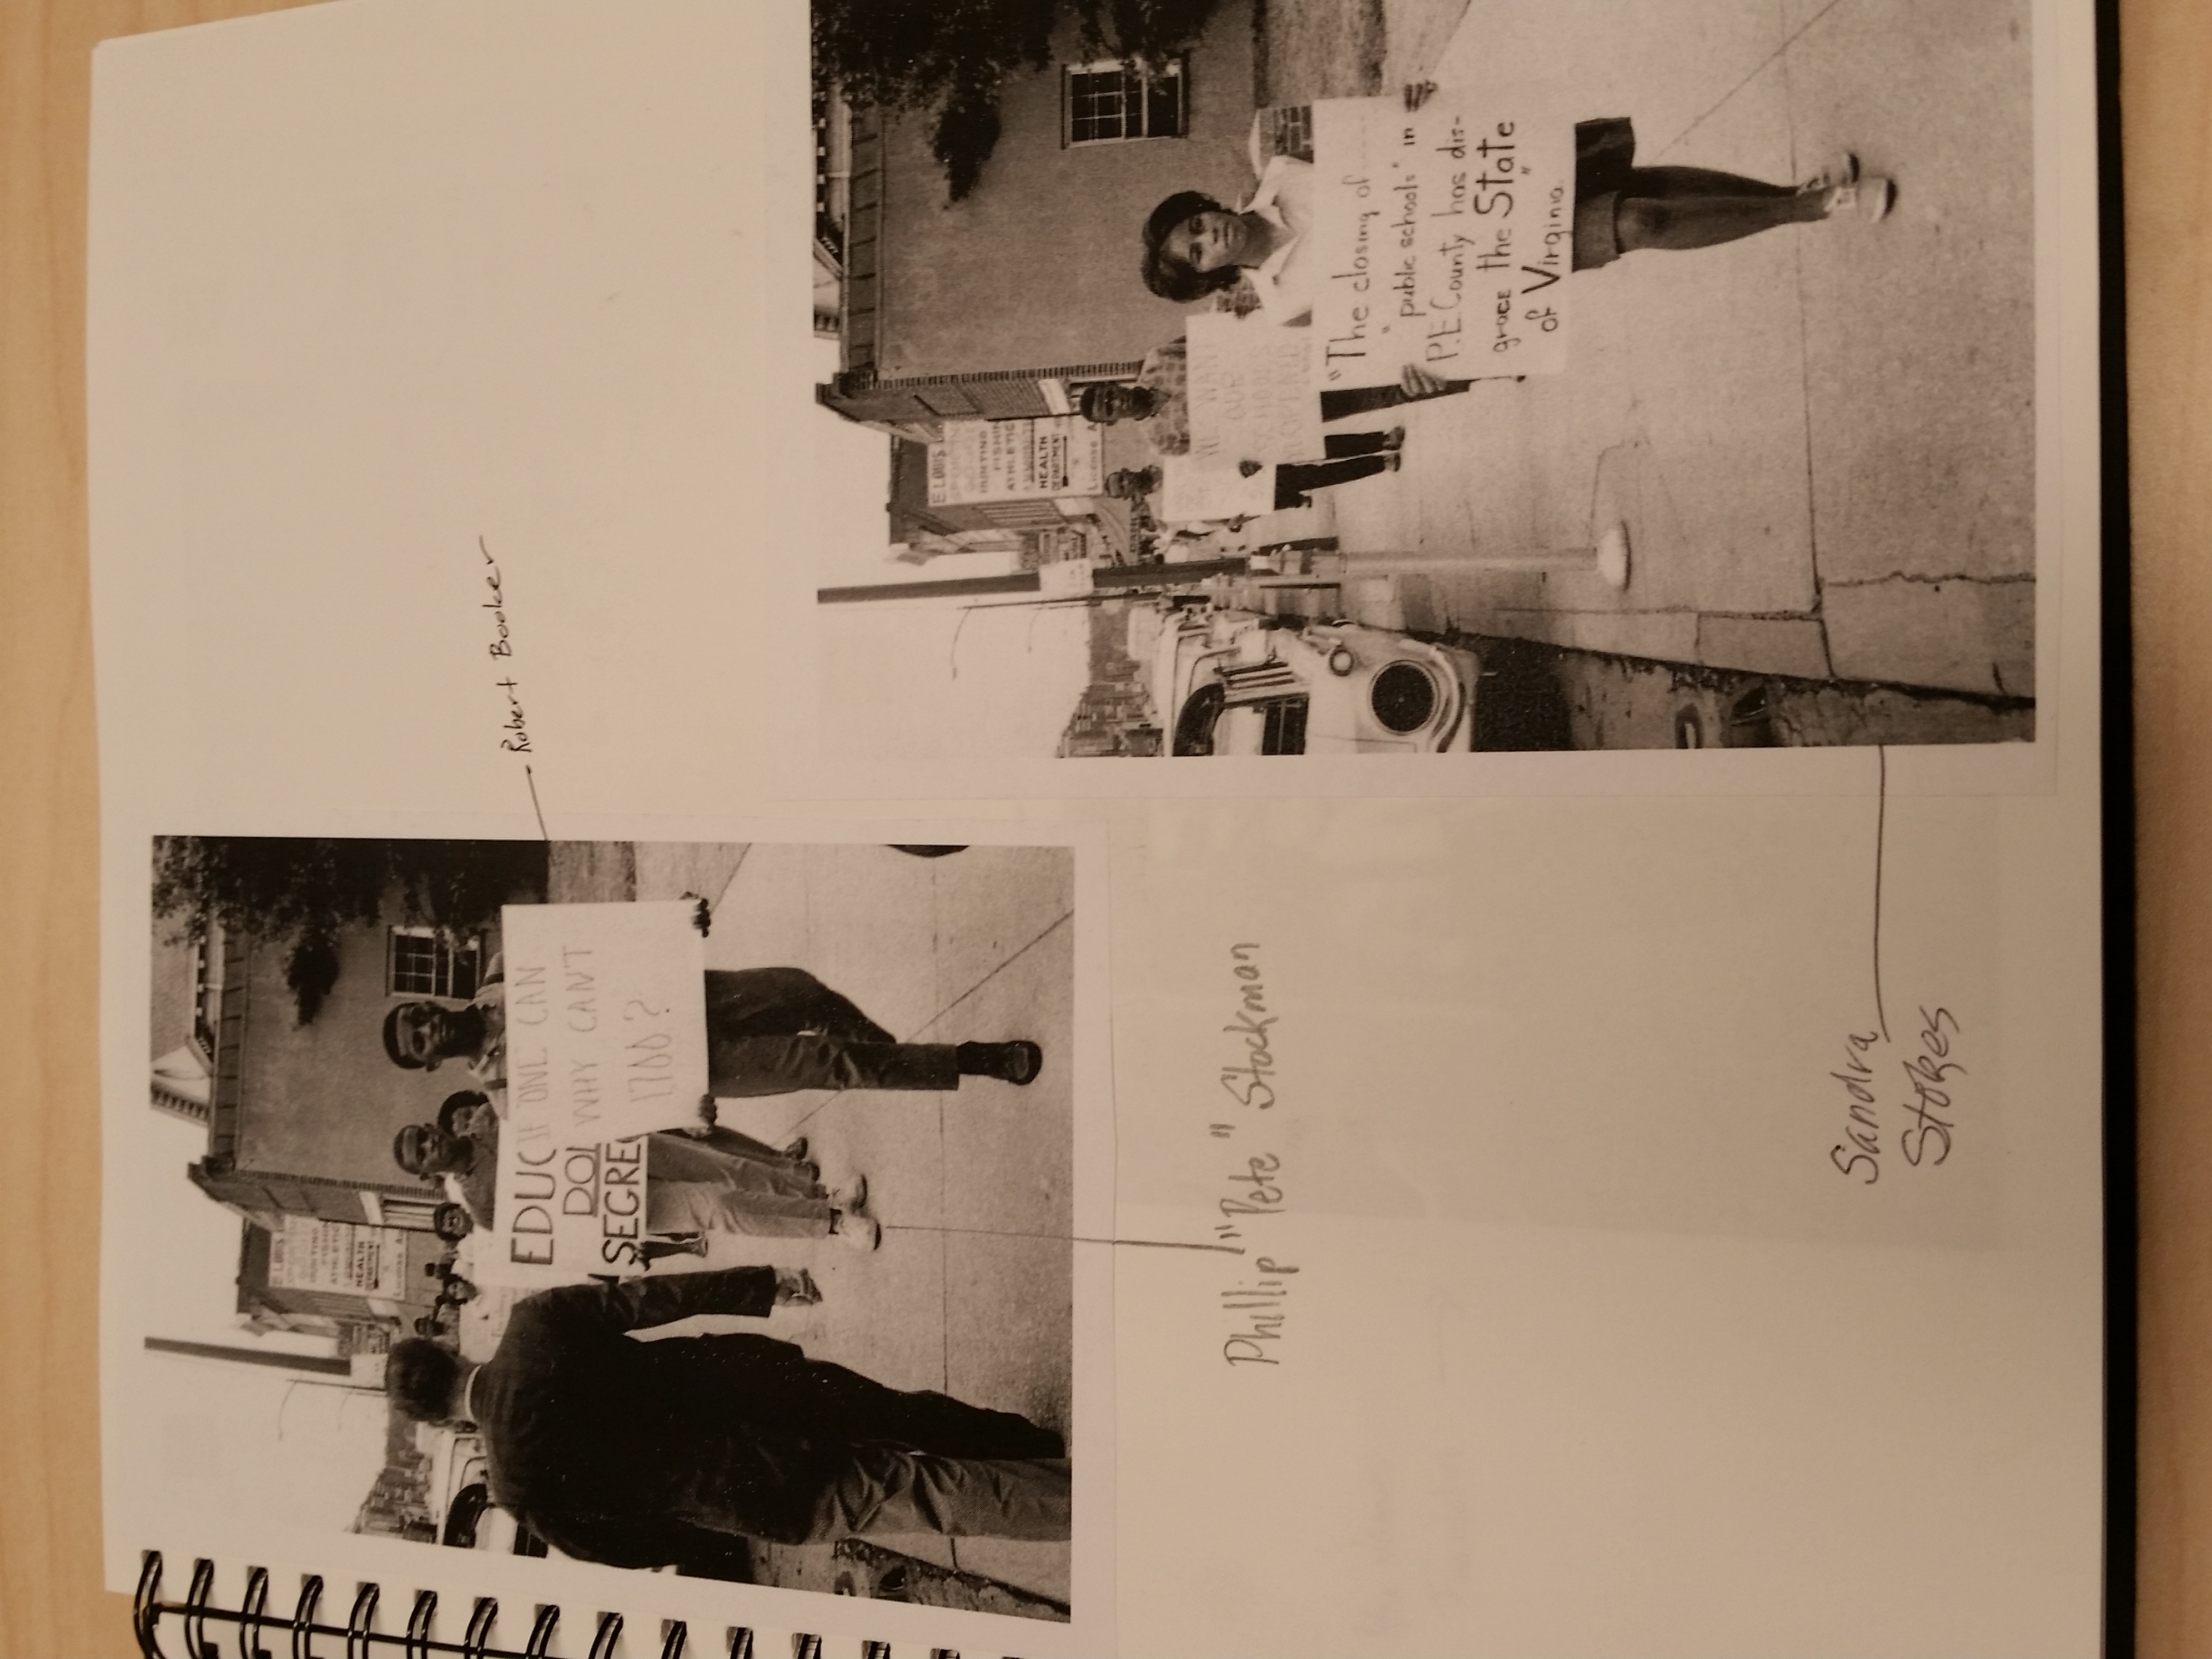 E. LOUIS
SPORTING
GOODS
HUNTING
FISHIN
ATHLETIC
HEALTH
DEPARTMENT
License A
EDUC
DOL
SEGREG
IF ONE CAN
WHY CAN'T
1700?
Robert Booker
Phillip "Pete" Stockman
E. LOUIS
SPORTING
GOODS
HUNTING
FISHIN
ATHLETIC
AMMUNITI
HEALTH
DEPARTMENT
License A
WE WANT
OUR
SCHOOLS
REOPENED
"The closing of-----
"public schools" in
P.E. County has dis-
grace the State
of Virginia."
Sandra
Stokes